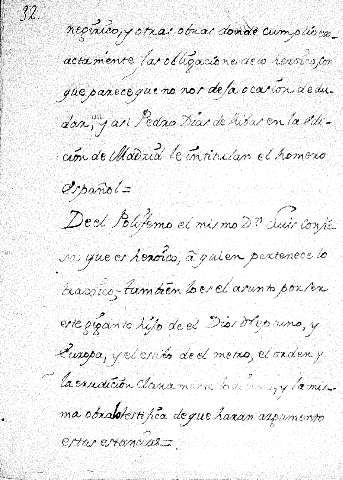 32.
negirico, y otras obras donde cumplio ex-
actamente las obligaciones de lo heroico, con
que parece que no nos dexa ocasion de du-
dar, y asi Pedro Dias de Ribas en la edi-
ción de Madrid le intitulan el homero
español=
De el Polifemo el mismo Dn. Luis confie
sa que es heroico, à quien pertenece lo
tragico, tambien lo es el asunto por ser
este gigante hijo de el Dios Neptuno, y
Europa, y el estilo de el metro, el orden y
la erudición claramente lo y la mis-
ma obra lo testifica de que haran argumento
estas estancias=